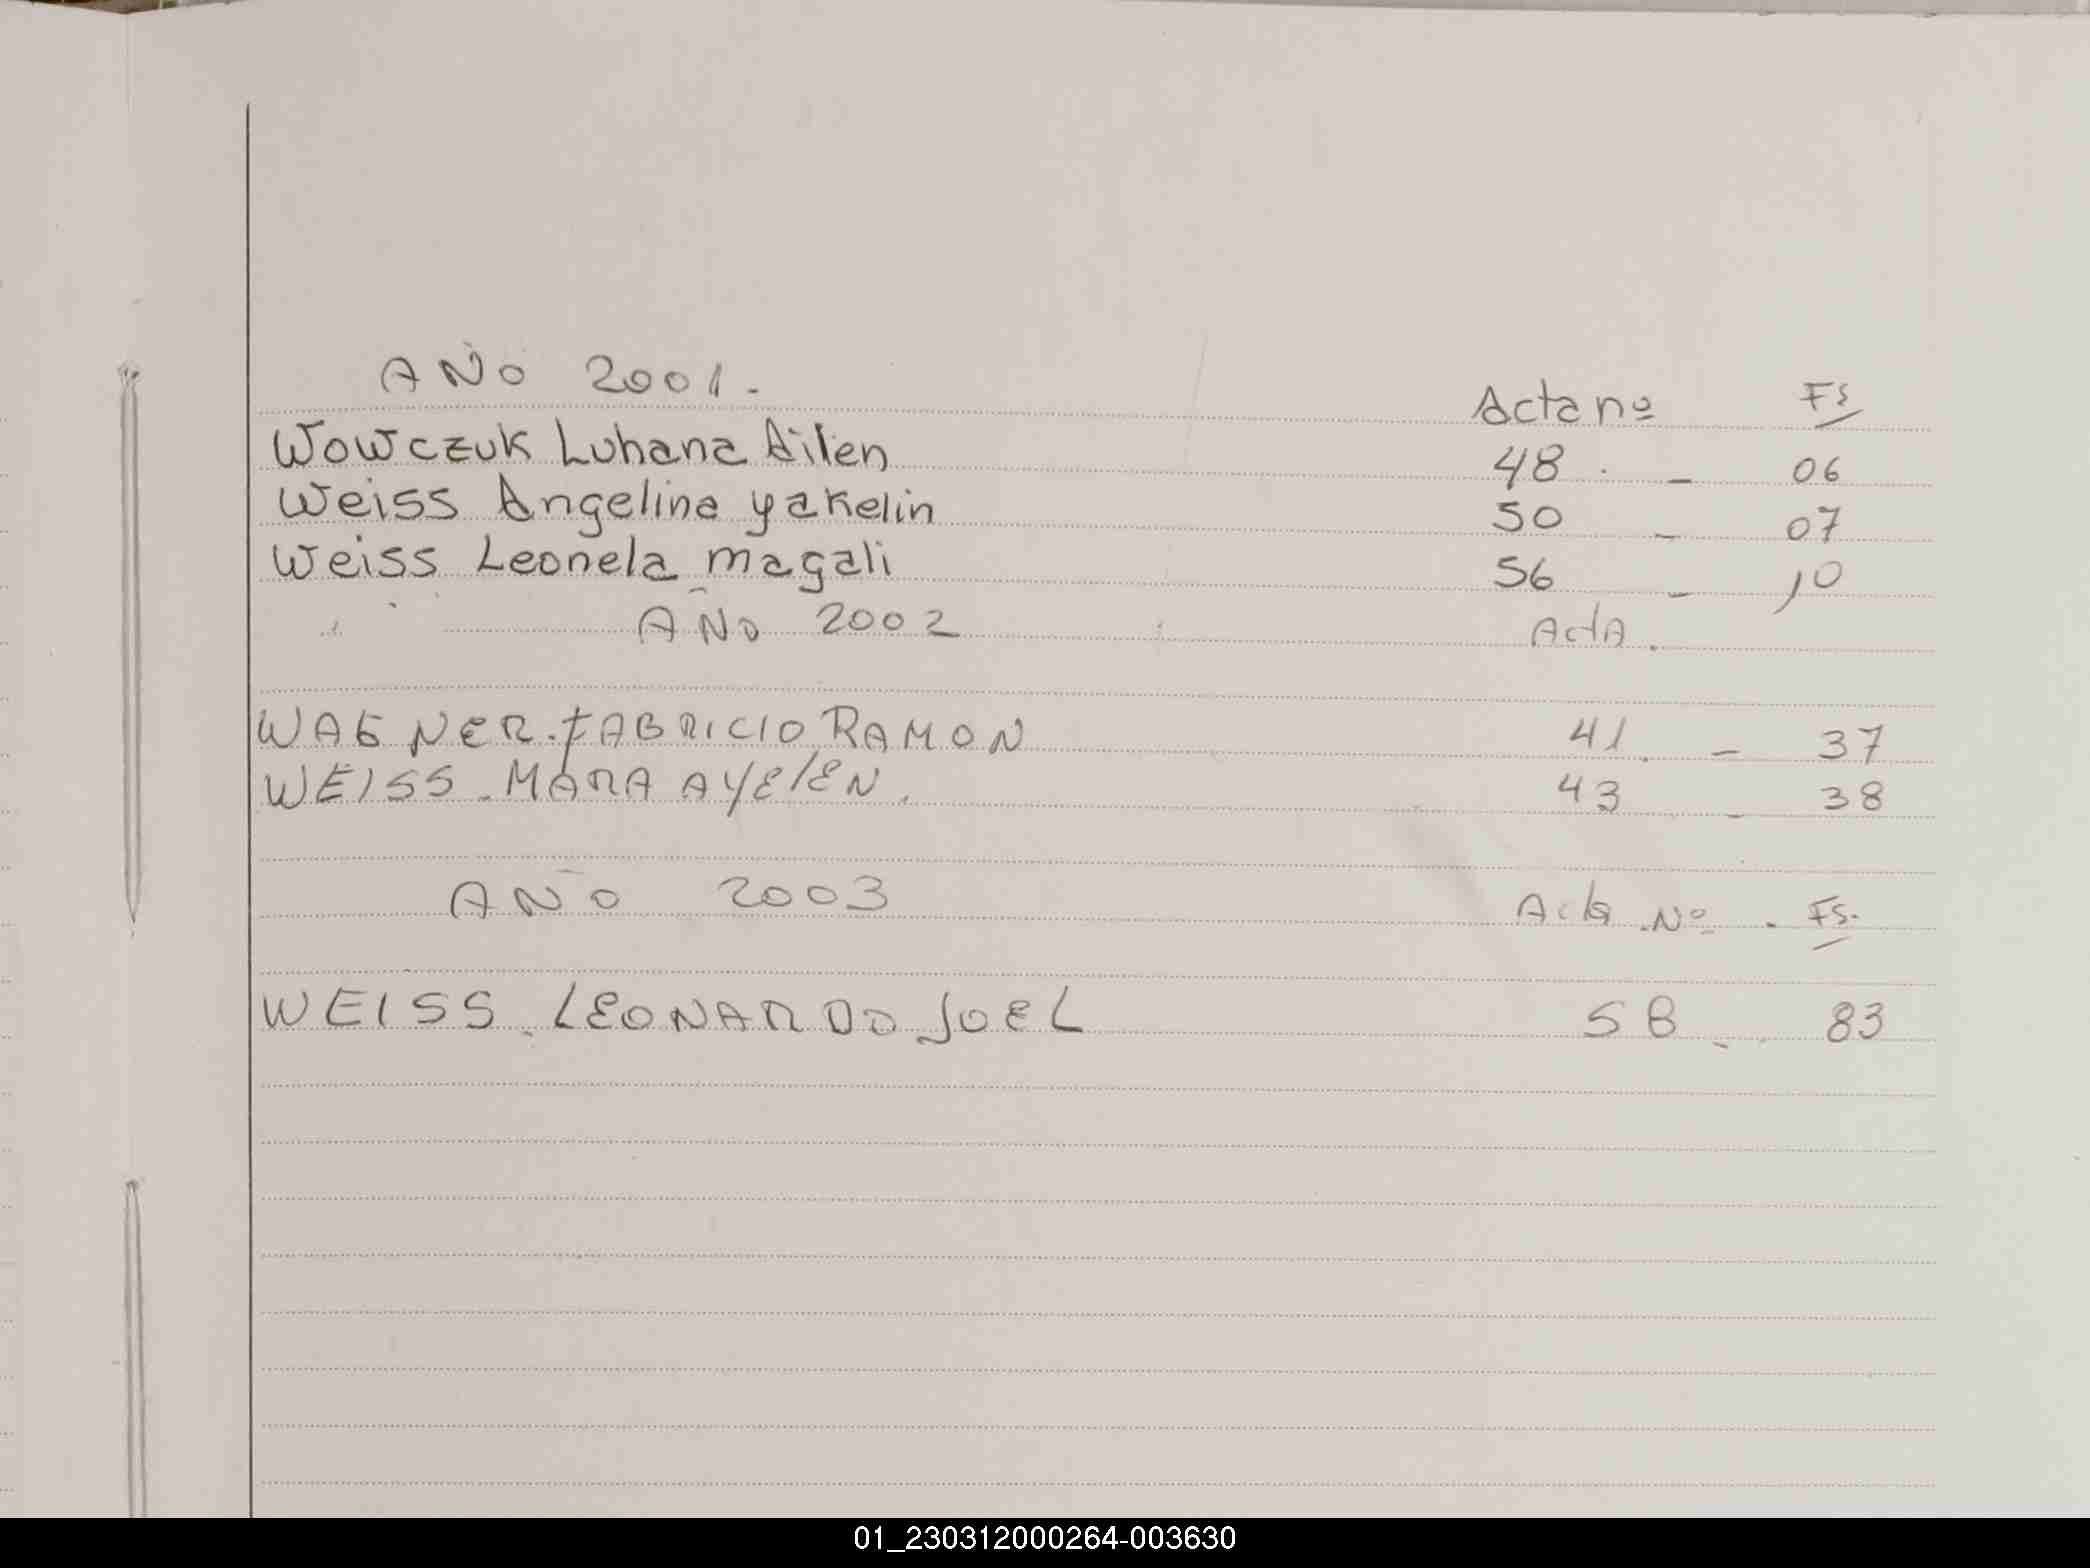 AÑO 2001.- Acta nº Fs
Wowczuk Luhana Ailen 48 - 06
Weiss Angelina yakelin 50 - 07
Weiss Leonela magali 56 - 10
AÑO 2002 ActA.
WAGNER. FABRICIO RAMON 41. - 37
WEISS. MARA AYElEN. 43 - 38
AÑO 2003 Acta Nº. Fs.
WEISS. LEONARDO JOEL 58 - 83
01_230312000264-003630